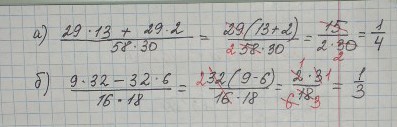 а) (29·13 + 29·2)/(58·30) = 29(13+2)/(2 58·30) = 15/(2·30 2) = 1/4
б) (9·32 − 32·6)/(16·18) = 2 32(9−6)/(16·18) = (1 2·3 1)/(6 18 3) = 1/3